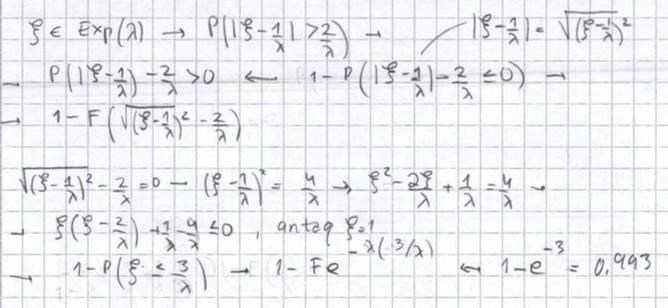 ξ ∈ Exp(λ) → P(|ξ-1/λ| > 2/λ) → |ξ-1/λ| = √(ξ-1/λ)²
→ P(|ξ-1/λ) - 2/λ > 0 ← 1-P(|ξ-1/λ| - 2/λ ≤ 0) →
→ 1-F(√(ξ-1/λ)² - 2/λ)
√(ξ-1/λ)² - 2/λ = 0 — (ξ-1/λ)² = 4/λ → ξ² - 2ξ/λ + 1/λ = 4/λ →
→ ξ(ξ-2/λ) + 1/λ - 4/λ ≤ 0, antag ξ=1
→ 1-P(ξ < 3/λ) → 1-Fe^-λ(-3/λ) ↔ 1-e^-3 = 0,993